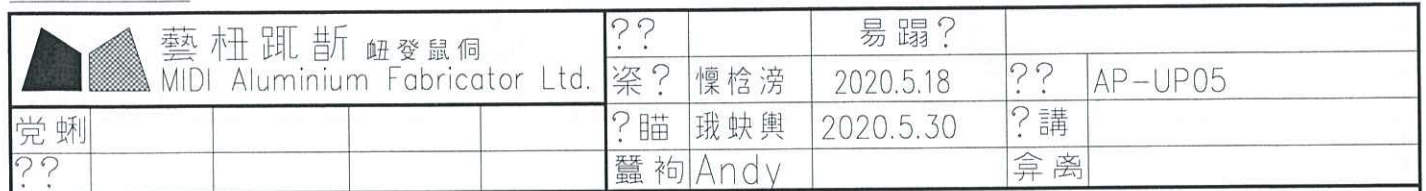 藝杻踂斱 衄癹鼠侗
MIDI Aluminium Fabricator Ltd.
?? 易蹋?
桬? 懍棯滂 2020.5.18 ?? AP-UP05
党蜊
?瞄 珴蚗輿 2020.5.30 ?講
??
蠶袧 Andy 弇离